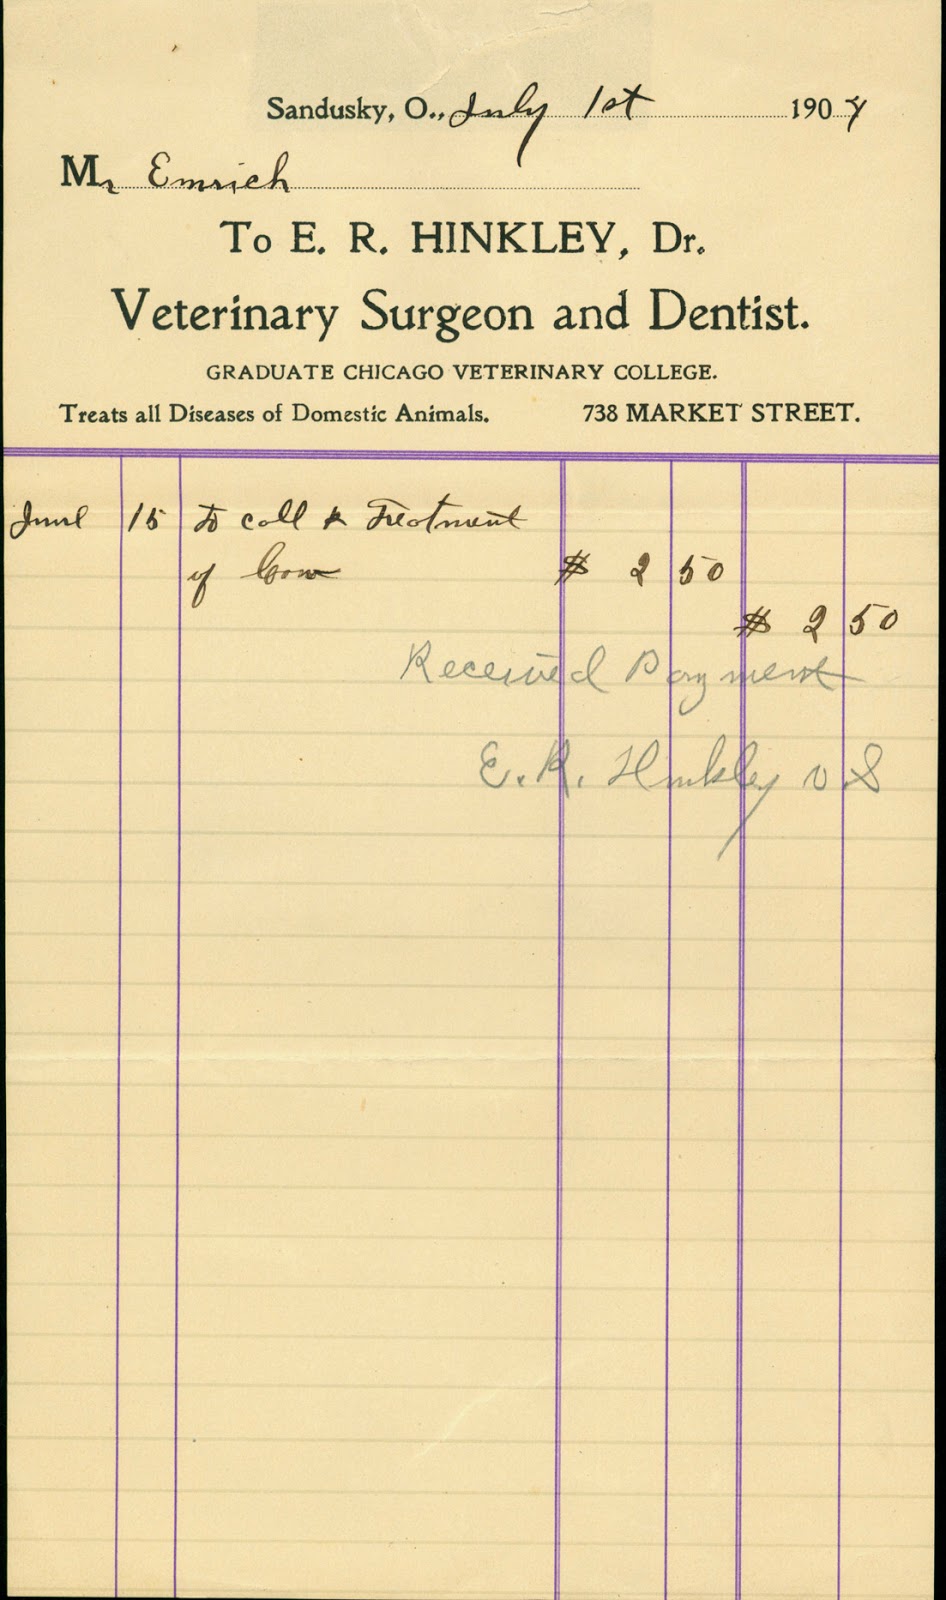 Sandusky, O., July 1st 1904
Mr Emrich
To E. R. HINKLEY, Dr.
Veterinary Surgeon and Dentist.
GRADUATE CHICAGO VETERINARY COLLEGE.
Treats all Diseases of Domestic Animals. 738 MARKET STREET.
June 15 To call & Treatment
of Cow $ 2 50
$ 2 50
Received Payment
E. R. Hinkley V S